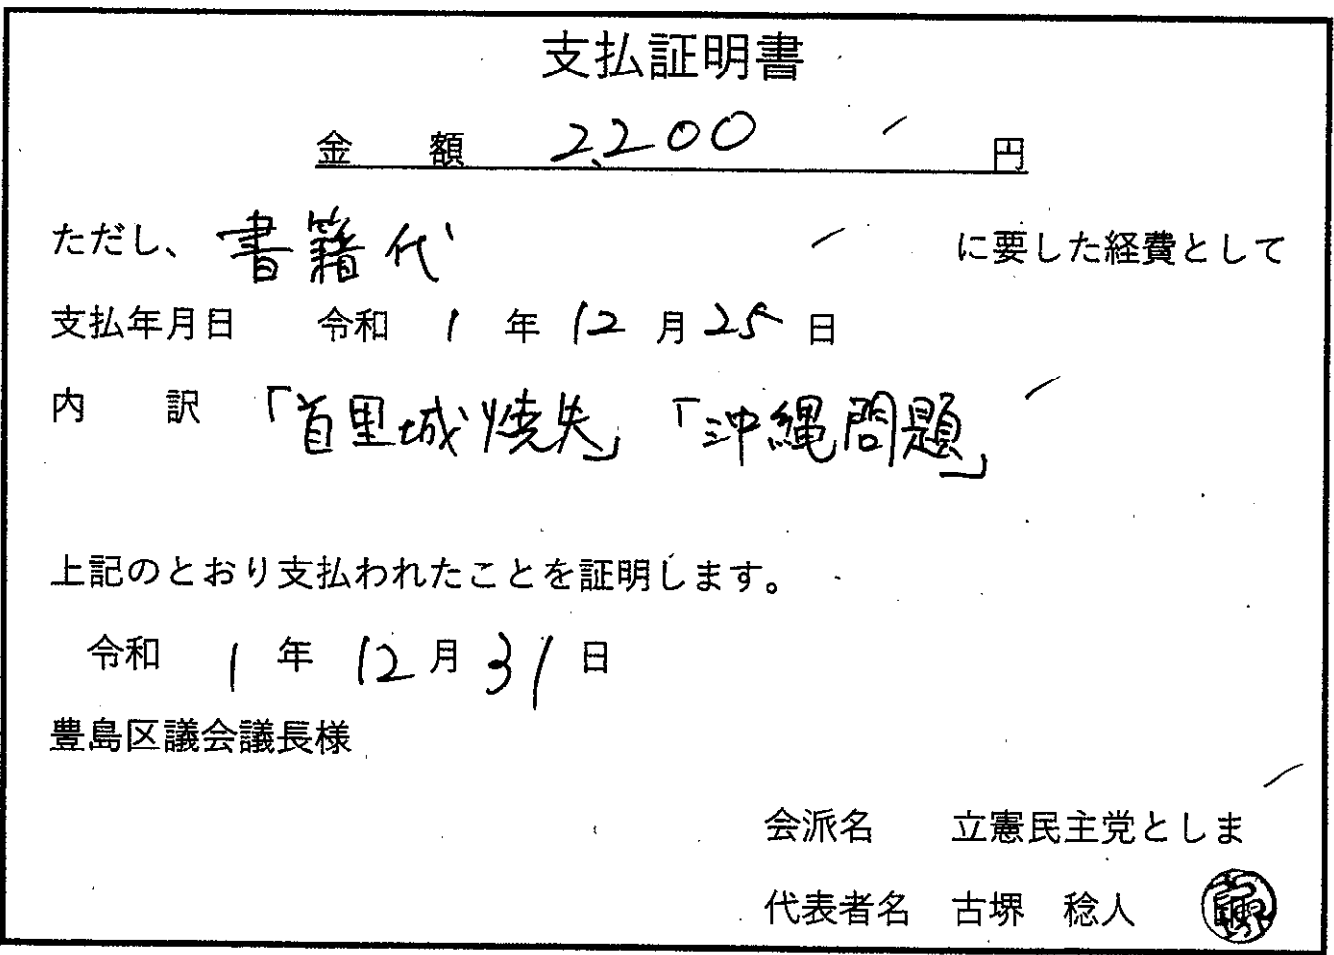 支払証明書
金　額　2,200　円
ただし、書籍代　に要した経費として
支払年月日　令和 1 年 12 月 25 日
内　訳　「首里城焼失」「沖縄問題」
上記のとおり支払われたことを証明します。
令和 1 年 12 月 31 日
豊島区議会議長様
会派名　立憲民主党としま
代表者名　古堺　稔人